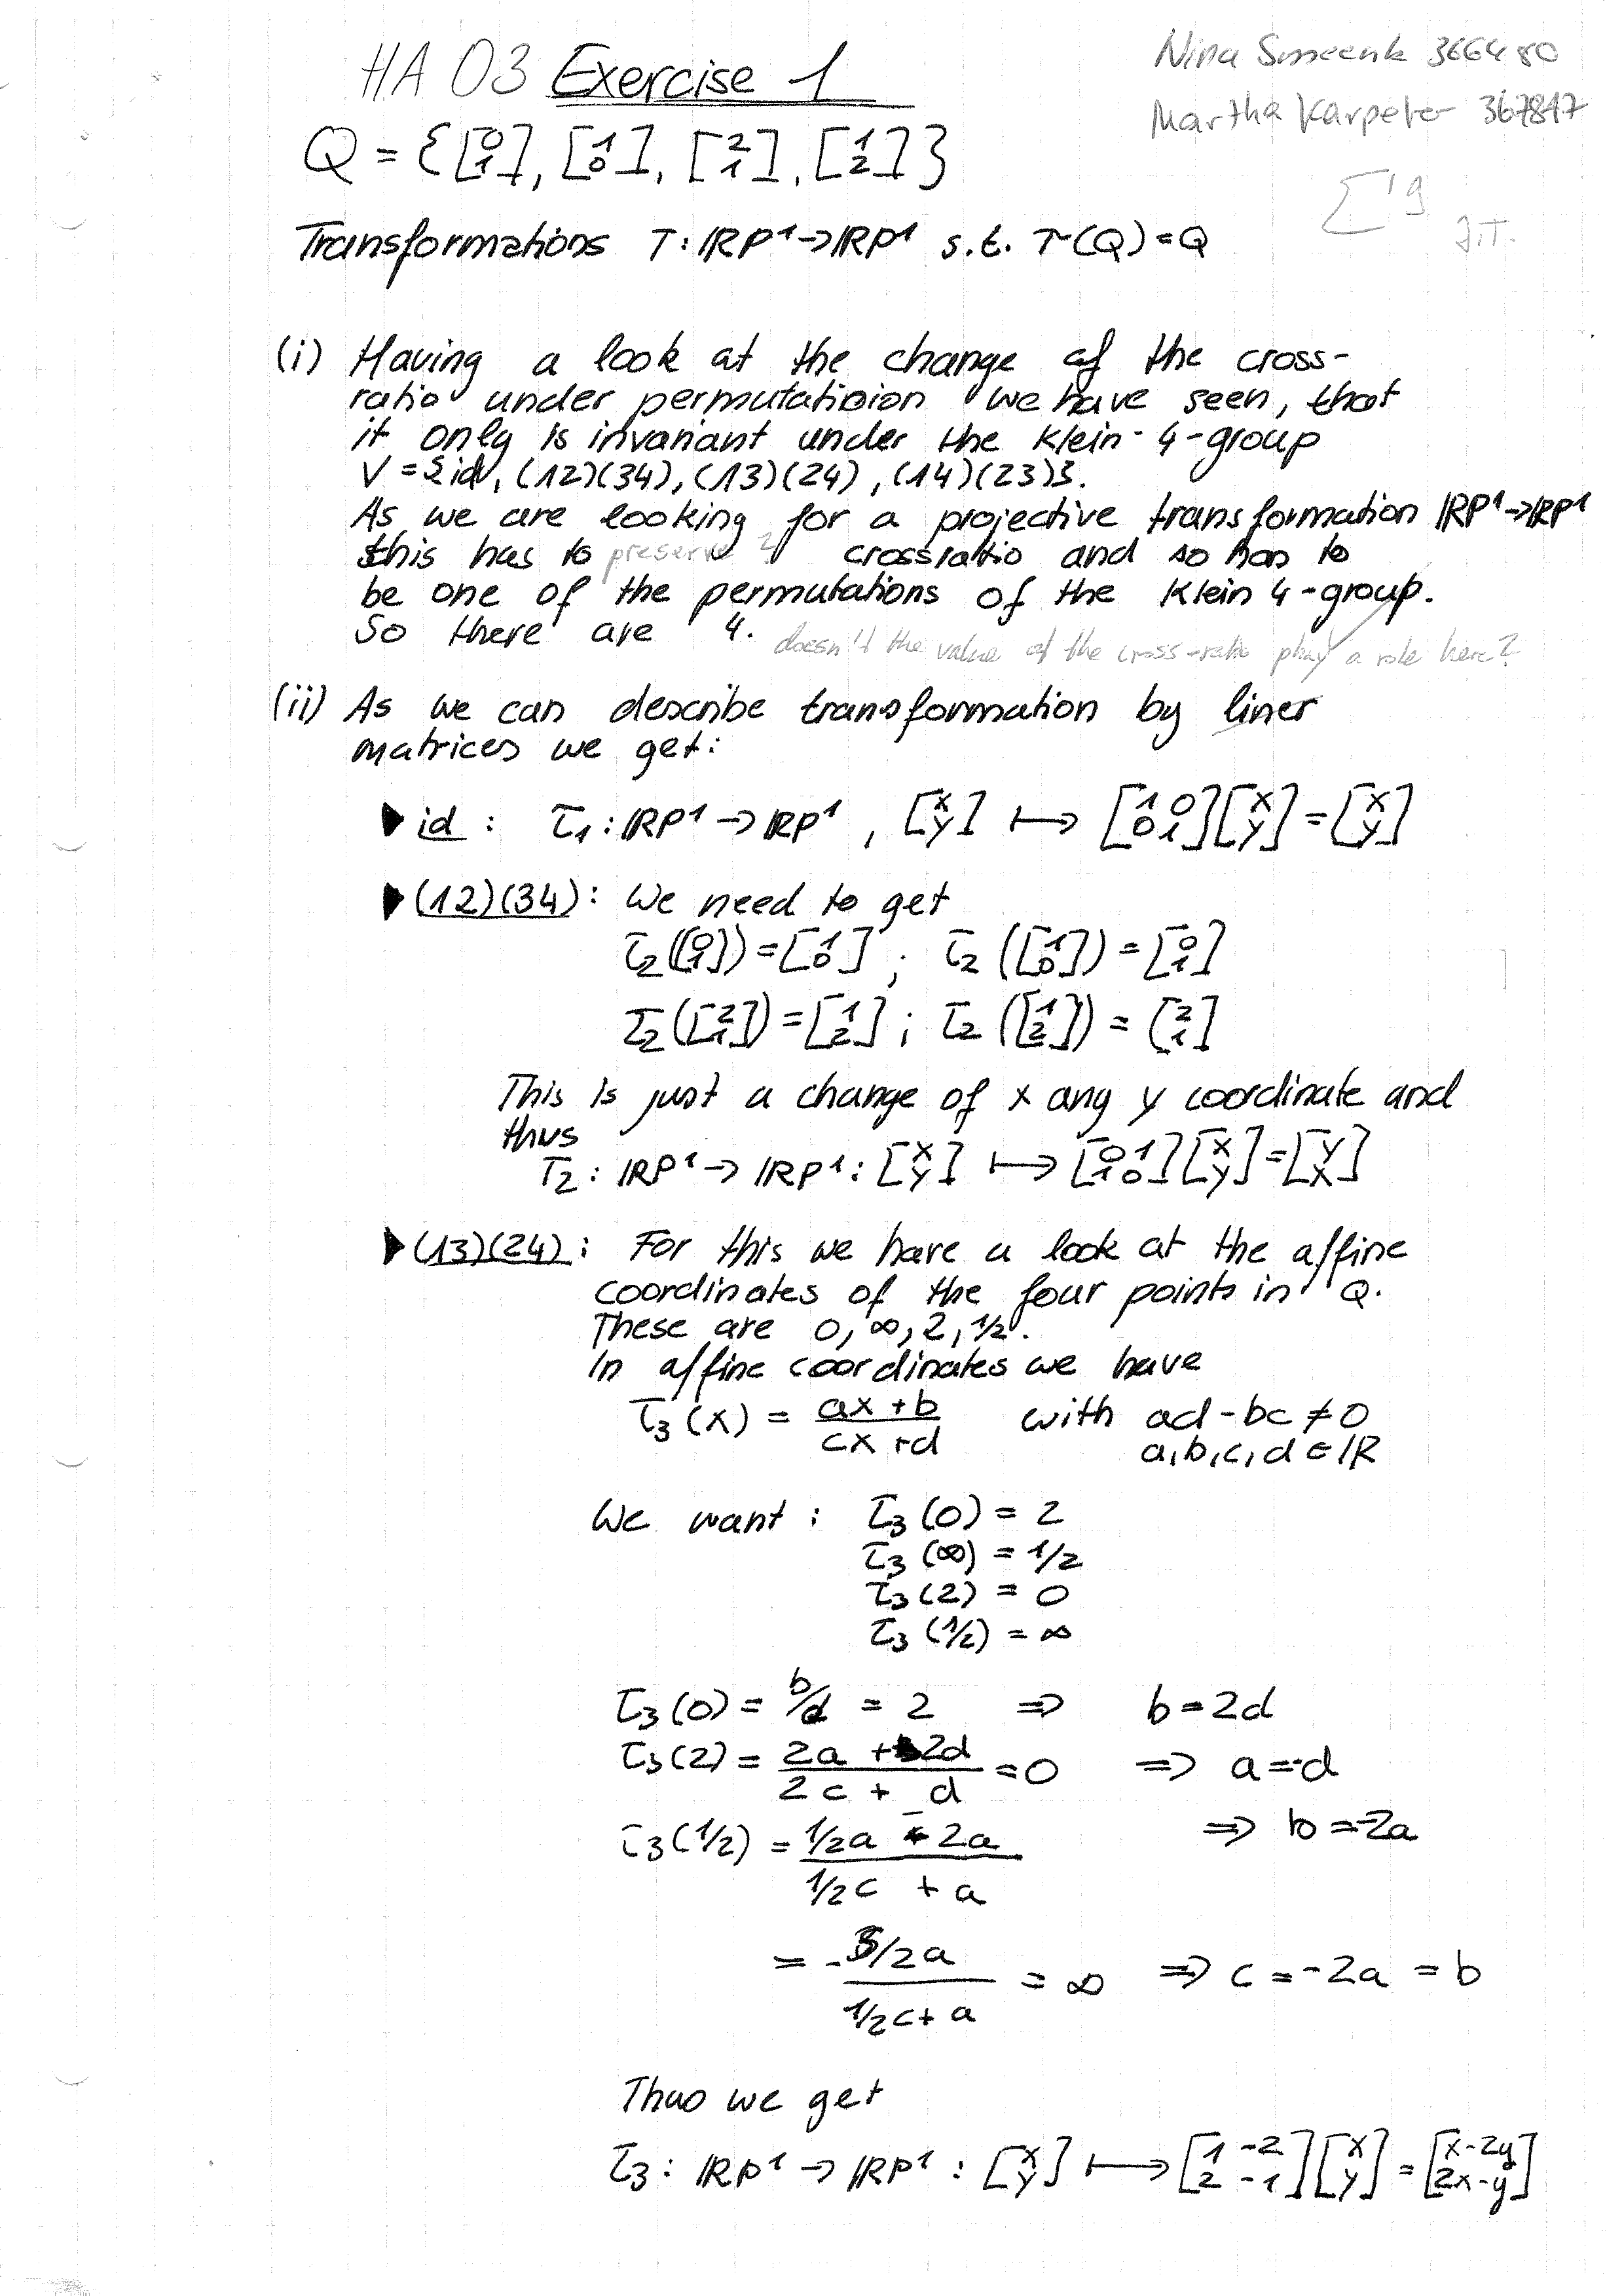 HA 03 Exercise 1
Nina Smeenk 366480
Martha Karpeter 367847
Q = {[0 1], [1 0], [2 1], [1 2]}
Σ 19
J.T.
Transformations T: ℝP¹→ℝP¹ s.t. T(Q)=Q
(i) Having a look at the change of the cross-
ratio under permutatioion we have seen, that
it only is invariant under the Klein-4-group
V = {id, (12)(34), (13)(24), (14)(23)}.
As we are looking for a projective transformation ℝP¹→ℝP¹
this has to preserve ? crossratio and so has to
be one of the permutations of the Klein 4-group.
So there are 4. doesn't the value of the cross-ratio play a role here?
(ii) As we can describe transformation by liner
matrices we get:
▶ id : τ₁: ℝP¹ → ℝP¹, [x y] ⟼ [1 0 0 1][x y] = [x y]
▶ (12)(34): We need to get
τ₂([0 1]) = [1 0] ; τ₂([1 0]) = [0 1]
τ₂([2 1]) = [1 2] ; τ₂([1 2]) = [2 1]
This is just a change of x ang y coordinate and
thus
τ₂: ℝP¹ → ℝP¹: [x y] ⟼ [0 1 1 0][x y] = [y x]
▶ (13)(24): For this we have a look at the affine
coordinates of the four points in Q.
These are 0, ∞, 2, 1/2.
In affine coordinates we have
τ₃(x) = (ax + b)/(cx + d) with ad - bc ≠ 0
a, b, c, d ∈ ℝ
We want : τ₃(0) = 2
τ₃(∞) = 1/2
τ₃(2) = 0
τ₃(1/2) = ∞
τ₃(0) = b/d = 2 ⇒ b = 2d
τ₃(2) = (2a + 2d)/(2c + d) = 0 ⇒ a = -d
⇒ b = -2a
τ₃(1/2) = (1/2a - 2a)/(1/2c + a)
= (-3/2a)/(1/2c + a) = ∞ ⇒ c = -2a = b
Thus we get
τ₃: ℝP¹ → ℝP¹ : [x y] ⟼ [1 -2 2 -1][x y] = [x-2y 2x-y]